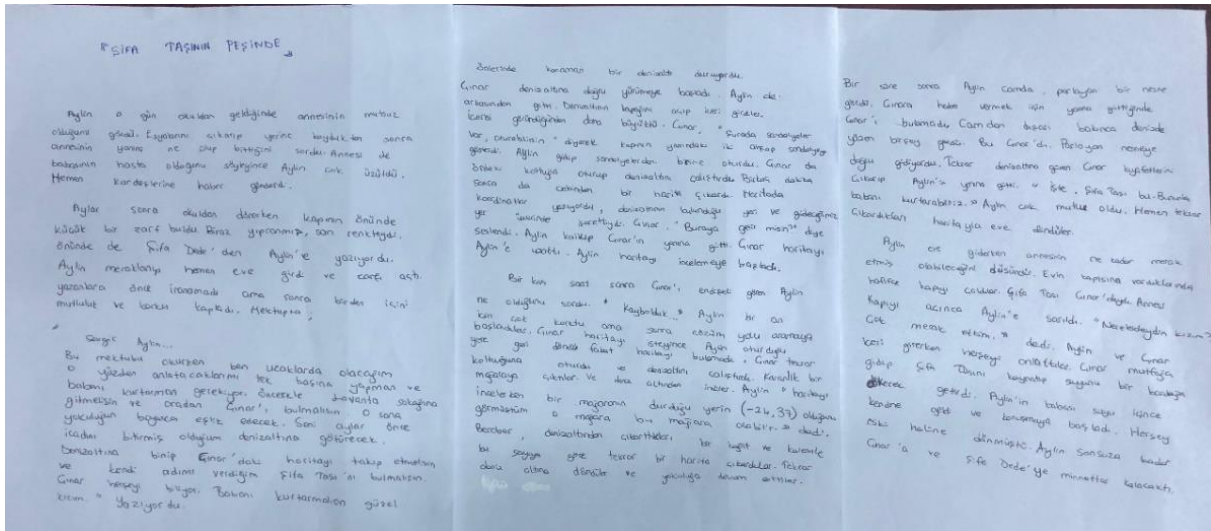 "ŞİFA TAŞININ PEŞİNDE"
Aylin o gün okuldan geldiğinde annesinin mutsuz
olduğunu gördü. Eşyalarını çıkarıp yerine koyduktan sonra
annesinin yanına ne olup bittiğini sordu. Annesi de
babasının hasta olduğunu söyleyince Aylin çok üzüldü.
Hemen kardeşlerine haber gönderdi.
Aylar sonra okuldan dönerken kapının önünde
küçük bir zarf buldu. Biraz yıpranmış, sarı renkteydi.
önünde de Şifa Dede'den Aylin'e yazıyordu.
Aylin meraklanıp hemen eve girdi ve zarfı açtı.
yazanlara önce inanamadı ama sonra birden içini
mutluluk ve korku kapladı. Mektupta ;
" Sevgili Aylin...
Bu mektubu okurken ben uzaklarda olacağım
o yüzden anlatacaklarımı tek başına yapman ve
babanı kurtarman gerekiyor. Öncelikle lavanta sokağına
gitmelisin ve oradan Çınar'ı bulmalısın. O sana
yolculuğun boyunca eşlik edecek. Seni aylar önce
icadını bitirmiş olduğum denizaltına götürecek.
Denizaltına binip Çınar'daki haritayı takip etmelisin
ve kendi adımı verdiğim Şifa Taşı'nı bulmalısın.
Çınar herşeyi biliyor. Babanı kurtarmalısın güzel
kızım. " yazıyordu.
Önlerinde kocaman bir denizaltı duruyordu.
Çınar denizaltına doğru yürümeye başladı. Aylin de
arkasından gitti. Denizaltının kapağını açıp içeri girdiler.
İçerisi göründüğünden daha büyüktü. Çınar, " Şurada sandalyeler
var, oturabilirsin " diyerek kapının yanındaki iki ahşap sandalyeyi
gösterdi. Aylin gidip sandalyelerden birine oturdu. Çınar da
öndeki koltuğa oturup denizaltını çalıştırdı. Birkaç dakika
sonra da cebinden bir harita çıkardı. Haritada
koordinatlar yazıyordu, denizaltının bulunduğu yeri ve gideceğimiz
yer üzerinde işaretliydi. Çınar, "Buraya gelir misin?" diye
seslendi. Aylin kalkıp Çınar'ın yanına gitti. Çınar haritayı
Aylin'e uzattı. Aylin haritayı incelemeye başladı.
Bir kum saat sonra Çınar'ı, endişeli gören Aylin
ne olduğunu sordu. " Kaybolduk.." Aylin bir an
için çok korktu ama sonra çözüm yolu aramaya
başladılar. Çınar haritayı isteyince Aylin oturduğu
yere geri döndü fakat haritayı bulamadı. Çınar tekrar
koltuğuna oturdu ve denizaltını çalıştırdı. Karanlık bir
mağaraya çıktılar. Ve deniz altından indiler. Aylin " haritayı
incelerken bir mağaranın durduğu yerin (-24,37) olduğunu
görmüştüm o mağara bu mağara olabilir. " dedi.
Beraber, denizaltından çıkarttıkları bir kağıt ve kalemle
bu sayıya göre tekrar bir harita çıkardılar. Tekrar
deniz altına döndüler ve yolculuğa devam ettiler.
Bir süre sonra Aylin camda, parlayan bir nesne
gördü. Çınara haber vermek için yanına gittiğinde
Çınar'ı bulamadı. Camdan dışarı bakınca denizde
yüzen birşey gördü. Bu Çınar'dı. Parlayan nesneye
doğru gidiyordu. Tekrar denizaltına gelen Çınar kıyafetlerini
çıkarıp Aylin'in yanına gitti. " İşte, Şifa Taşı bu. Bununla
babanı kurtarabiliriz." Aylin çok mutlu oldu. Hemen tekrar
çıkardıkları haritayla eve döndüler.
Aylin eve giderken annesinin ne kadar merak
etmiş olabileceğini düşündü. Evin kapısına vardıklarında
hafifçe kapıyı çaldılar. Şifa Taşı Çınar'daydı. Annesi
kapıyı açınca Aylin'e sarıldı. "Neredeydin kızım?
Çok merak ettim. " dedi. Aylin ve Çınar
içeri girerken herşeyi anlattılar. Çınar mutfağa
gidip Şifa Taşını kaynatıp suyunu bir bardağa
dökerek getirdi. Aylin'in babası suyu içince
kendine geldi ve konuşmaya başladı. Herşey
eski haline dönmüştü. Aylin sonsuza kadar
Çınar'a ve Şifa Dede'ye minnettar kalacaktı.